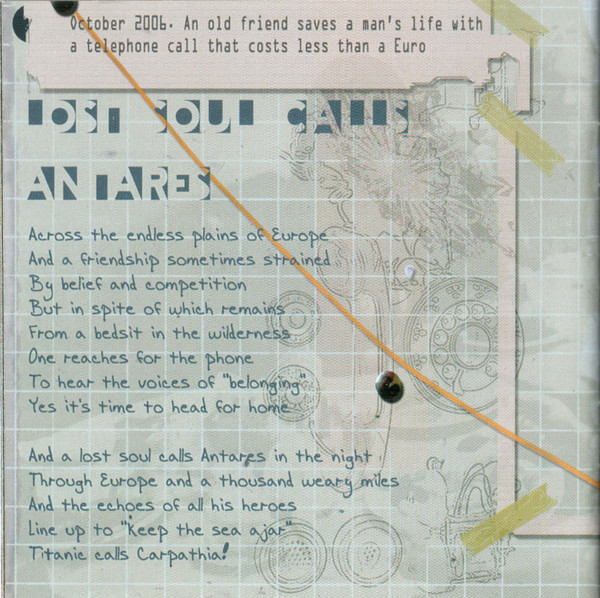 October 2006. An old friend saves a man's life with
a telephone call that costs less than a Euro
LOST SOUL CALLS
ANTARES
Across the endless plains of Europe
And a friendship sometimes strained
By belief and competition
But in spite of which remains
From a bedsit in the wilderness
One reaches for the phone
To hear the voices of "belonging"
Yes it's time to head for home
And a lost soul calls Antares in the night
Through Europe and a thousand weary miles
And the echoes of all his heroes
Line up to "keep the sea ajar"
Titanic calls Carpathia!